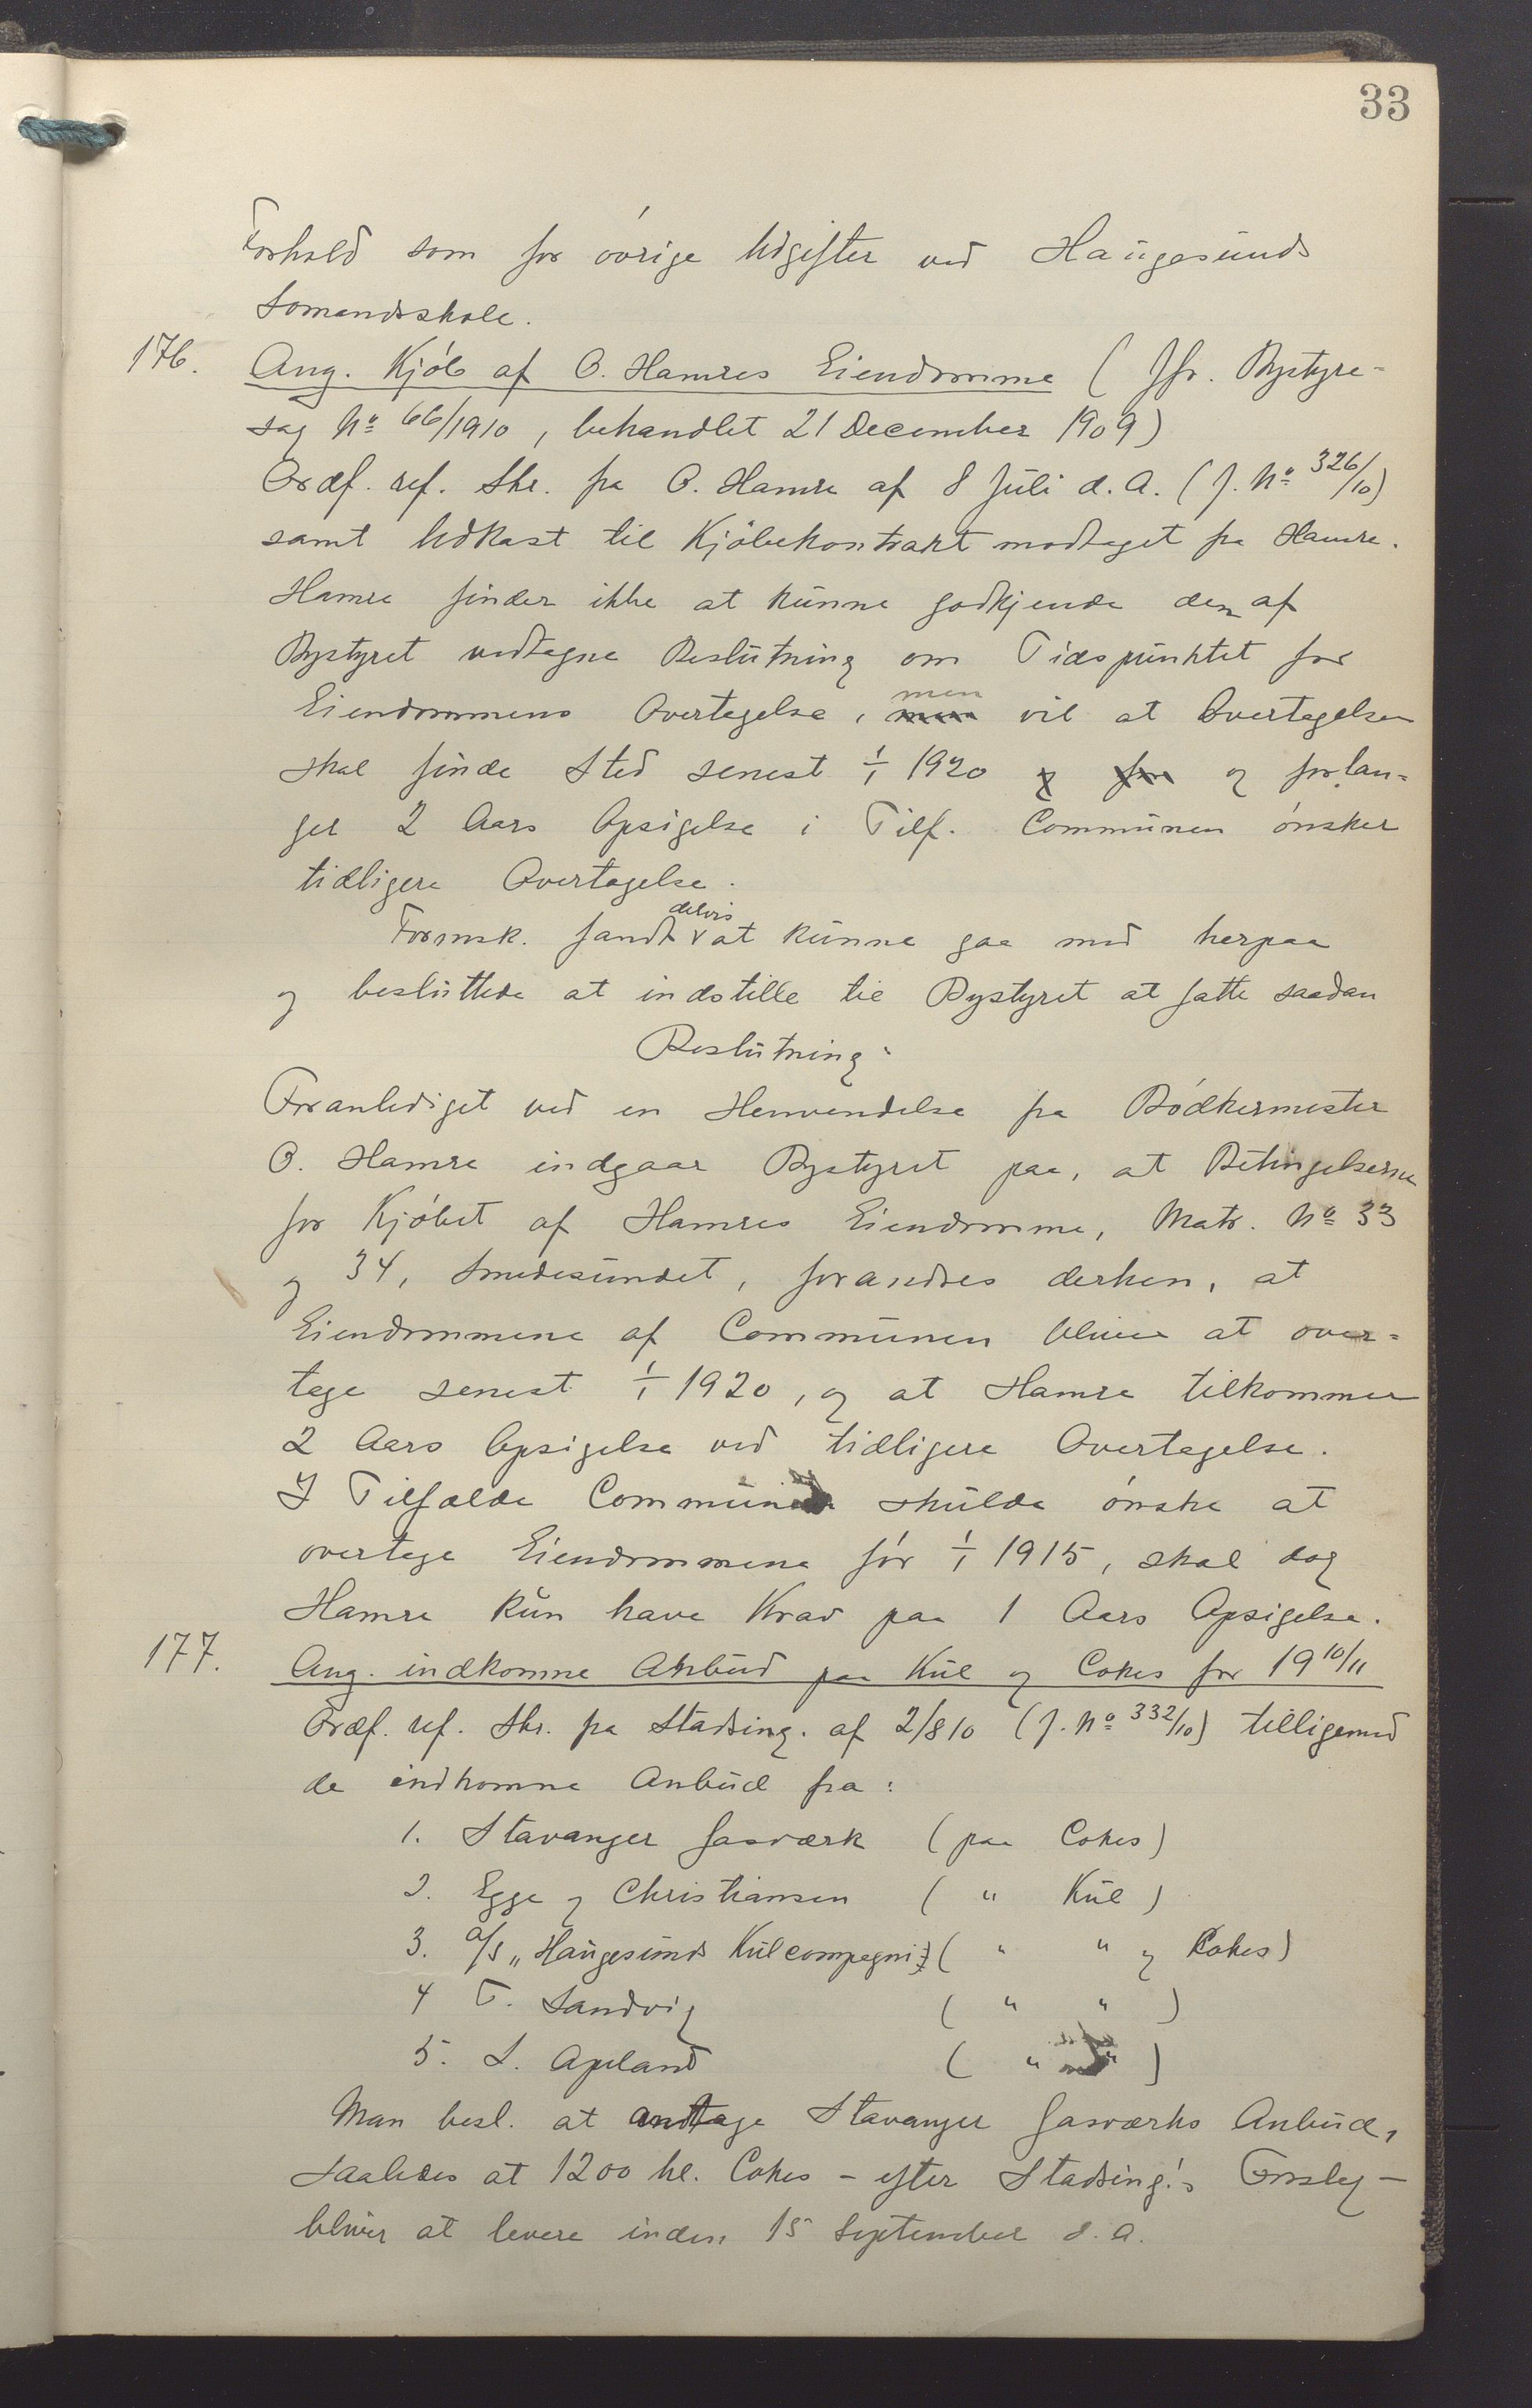 33
Forhold som for øvrige Udgifter ved Haugesunds
Sømandsskole.
176. Ang. Kjøb af O. Hamres Eiendomme (Jfr. Bystyre-
sag No 66/1910, behandlet 21 December 1909)
Ordf. ref. Skr. fra O. Hamre af 8 Juli d. A. (J. No 326/10)
samt Udkast til Kjøbekontrakt modtaget fra Hamre.
Hamre finder ikke at kunne godkjende den af
Bystyret vedtagne Beslutning om Tidspunktet for
Eiendommens Overtagelse, men vil at Overtagelsen
skal finde Sted senest 1/1 1920 og forlan-
ger 2 Aars Opsigelse i Tilf. Communen ønsker
tidligere Overtagelse.
Formsk. fandt delvis at kunne gaa med herpaa
og besluttede at indstille til Bystyret at fatte saadan
Beslutning:
Foranlediget ved en Henvendelse fra Bødkermester
O. Hamre indgaar Bystyret paa, at Betingelserne
for Kjøbet af Hamres Eiendomme, Matr. No 33
og 34, Smedesundet, forandres derhen, at
Eiendommene af Communen bliver at over-
tage senest 1/1 1920, og at Hamre tilkommer
2 Aars Opsigelse ved tidligere Overtagelse.
I Tilfælde Communen skulde ønske at
overtage Eiendommene før 1/1 1915, skal dog
Hamre kun have Krav paa 1 Aars Opsigelse.
177. Ang. indkomne Anbud paa Kul og Cokes for 1910/11
Ordf. ref. Skr. fra Stadsing. af 2/8 10 (J. No 332/10) tilligemed
de indkomne Anbud fra:
1. Stavanger Gasværk (paa Cokes)
2. Egge og Christiansen ( " Kul )
3. A/S „Haugesunds Kulcompagni" ( " " og Cokes)
4 T. Sandvig ( " " )
5. L. Apeland ( " " )
Man besl. at antage Stavanger Gasværks Anbud,
saaledes at 1200 hl. Cokes – efter Stadsing.'s Forslag –
bliver at levere inden 15 September d. A.